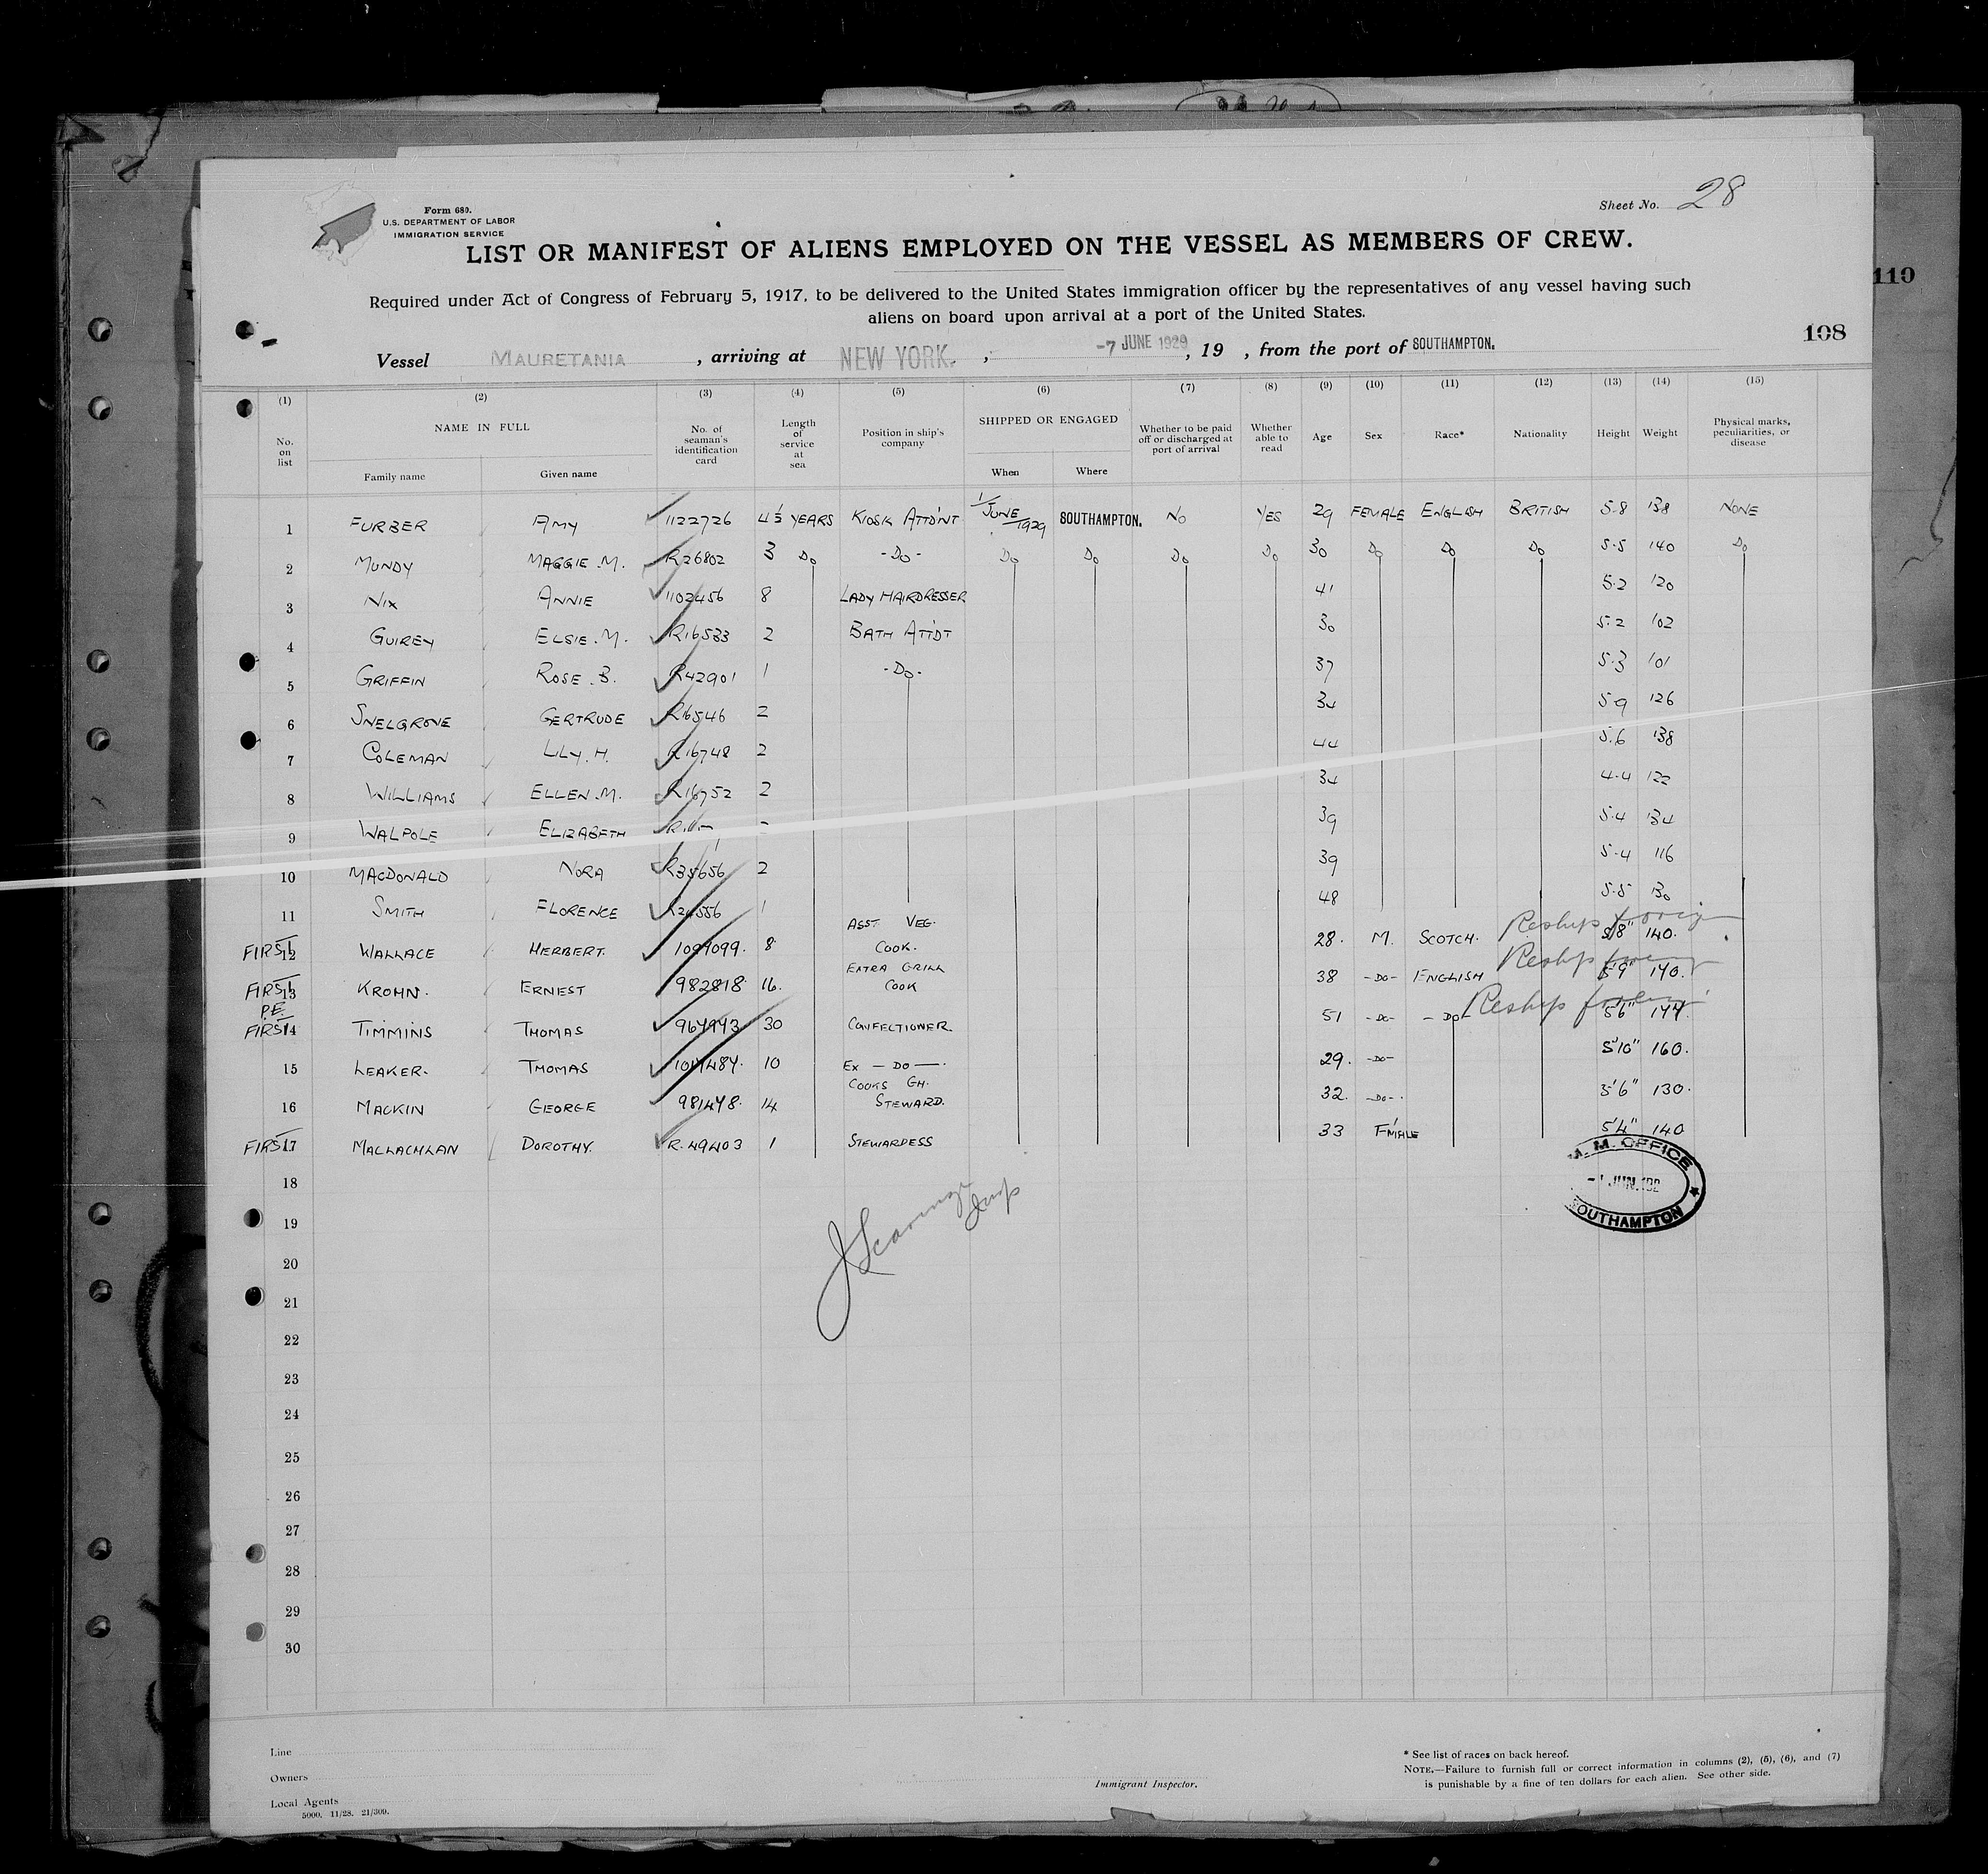 Sheet No. 28
Form 680.
U.S. DEPARTMENT OF LABOR
IMMIGRATION SERVICE
LIST OR MANIFEST OF ALIENS EMPLOYED ON THE VESSEL AS MEMBERS OF CREW.
110
Required under Act of Congress of February 5, 1917, to be delivered to the United States immigration officer by the representatives of any vessel having such
aliens on board upon arrival at a port of the United States.
108
Vessel MAURETANIA , arriving at NEW YORK. , -7 JUNE 1929 , 19 , from the port of SOUTHAMPTON.
(1) (2) (3) (4) (5) (6) (7) (8) (9) (10) (11) (12) (13) (14) (15)
No. on list NAME IN FULL Family name Given name No. of seaman's identification card Length of service at sea Position in ship's company SHIPPED OR ENGAGED When Where Whether to be paid off or discharged at port of arrival Whether able to read Age Sex Race* Nationality Height Weight Physical marks, peculiarities, or disease
1 FURBER AMY 1122726 4½ YEARS KIOSK ATTD'NT 1/JUNE/1929 SOUTHAMPTON. NO YES 29 FEMALE ENGLISH BRITISH 5.8 138 NONE
2 MUNDY MAGGIE.M. R26802 3 Do -Do- Do Do Do Do 30 Do Do Do 5.5 140 Do
3 NIX ANNIE 1102456 8 LADY HAIRDRESSER 41 5.2 120
4 GUIREY ELSIE.M. R16533 2 BATH ATTDT 30 5.2 102
5 GRIFFIN ROSE.B. R42901 1 -Do- 37 5.3 101
6 SNELGROVE GERTRUDE R16546 2 34 5.9 126
7 COLEMAN LILY.H. R16748 2 44 5.6 138
8 WILLIAMS ELLEN.M. R16752 2 34 4.4 122
9 WALPOLE ELIZABETH 39 5.4 134
10 MACDONALD NORA R35656 2 39 5.4 116
11 SMITH FLORENCE R24556 1 48 5.5 130
FIRST 12 WALLACE HERBERT. 1099099. 8 ASST VEG. COOK. 28. M. SCOTCH. Reships foreign 5'8" 140.
FIRST 13 KROHN. ERNEST 982818 16. EXTRA GRILL COOK 38 -DO- ENGLISH Reships foreign 5'9" 140.
P.E. FIRST 14 TIMMINS THOMAS 964943 30 CONFECTIONER 51 -DO- -DO- Reships foreign 5'6" 144.
15 LEAKER. THOMAS 1014484. 10 EX -DO-. 29. -DO- 5'10" 160.
16 MACKIN GEORGE 981478. 14 COOKS GH. STEWARD. 32. -DO-. 5'6" 130.
FIRST 17 MACLACHLAN DOROTHY. R.49403 1 STEWARDESS 33 F'MALE 5'4" 140
18
M. M. OFFICE
-1 JUN. 192
SOUTHAMPTON
19
20
21
22
23
24
25
26
27
28
29
30
Line
Owners
Local Agents
5000. 11/28. 21/309.
Immigrant Inspector.
* See list of races on back hereof.
NOTE.—Failure to furnish full or correct information in columns (2), (5), (6), and (7)
is punishable by a fine of ten dollars for each alien. See other side.